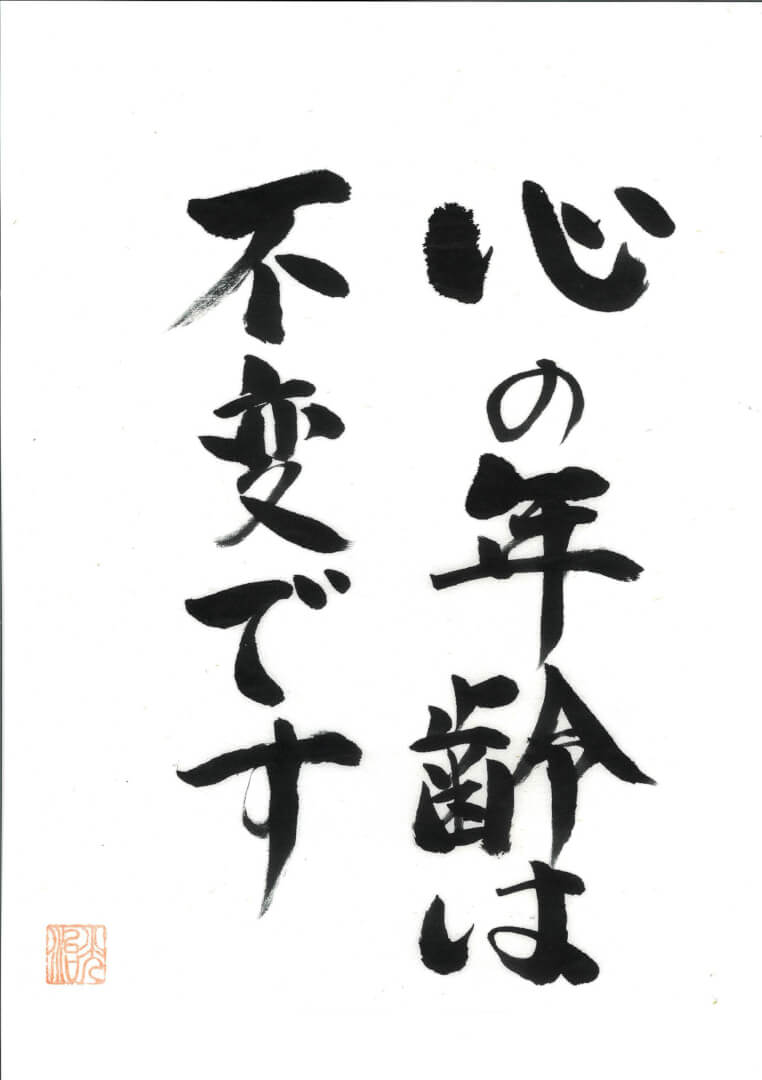 心の年齢は
不変です